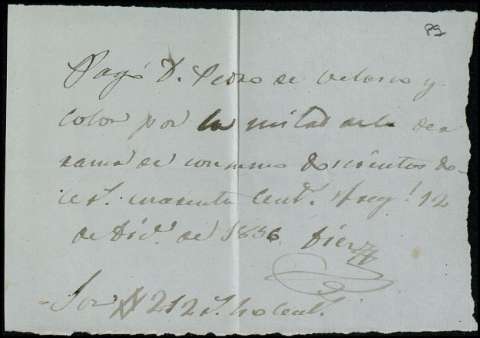 82
Pagó D. Pedro de Velasco y
Colon por la mitad de la der
rama de consumo Doscientos do-
ce r. cuarenta Cent.
12
de Dic. de 1856 Diez
Son 212 r. 40 Cent.